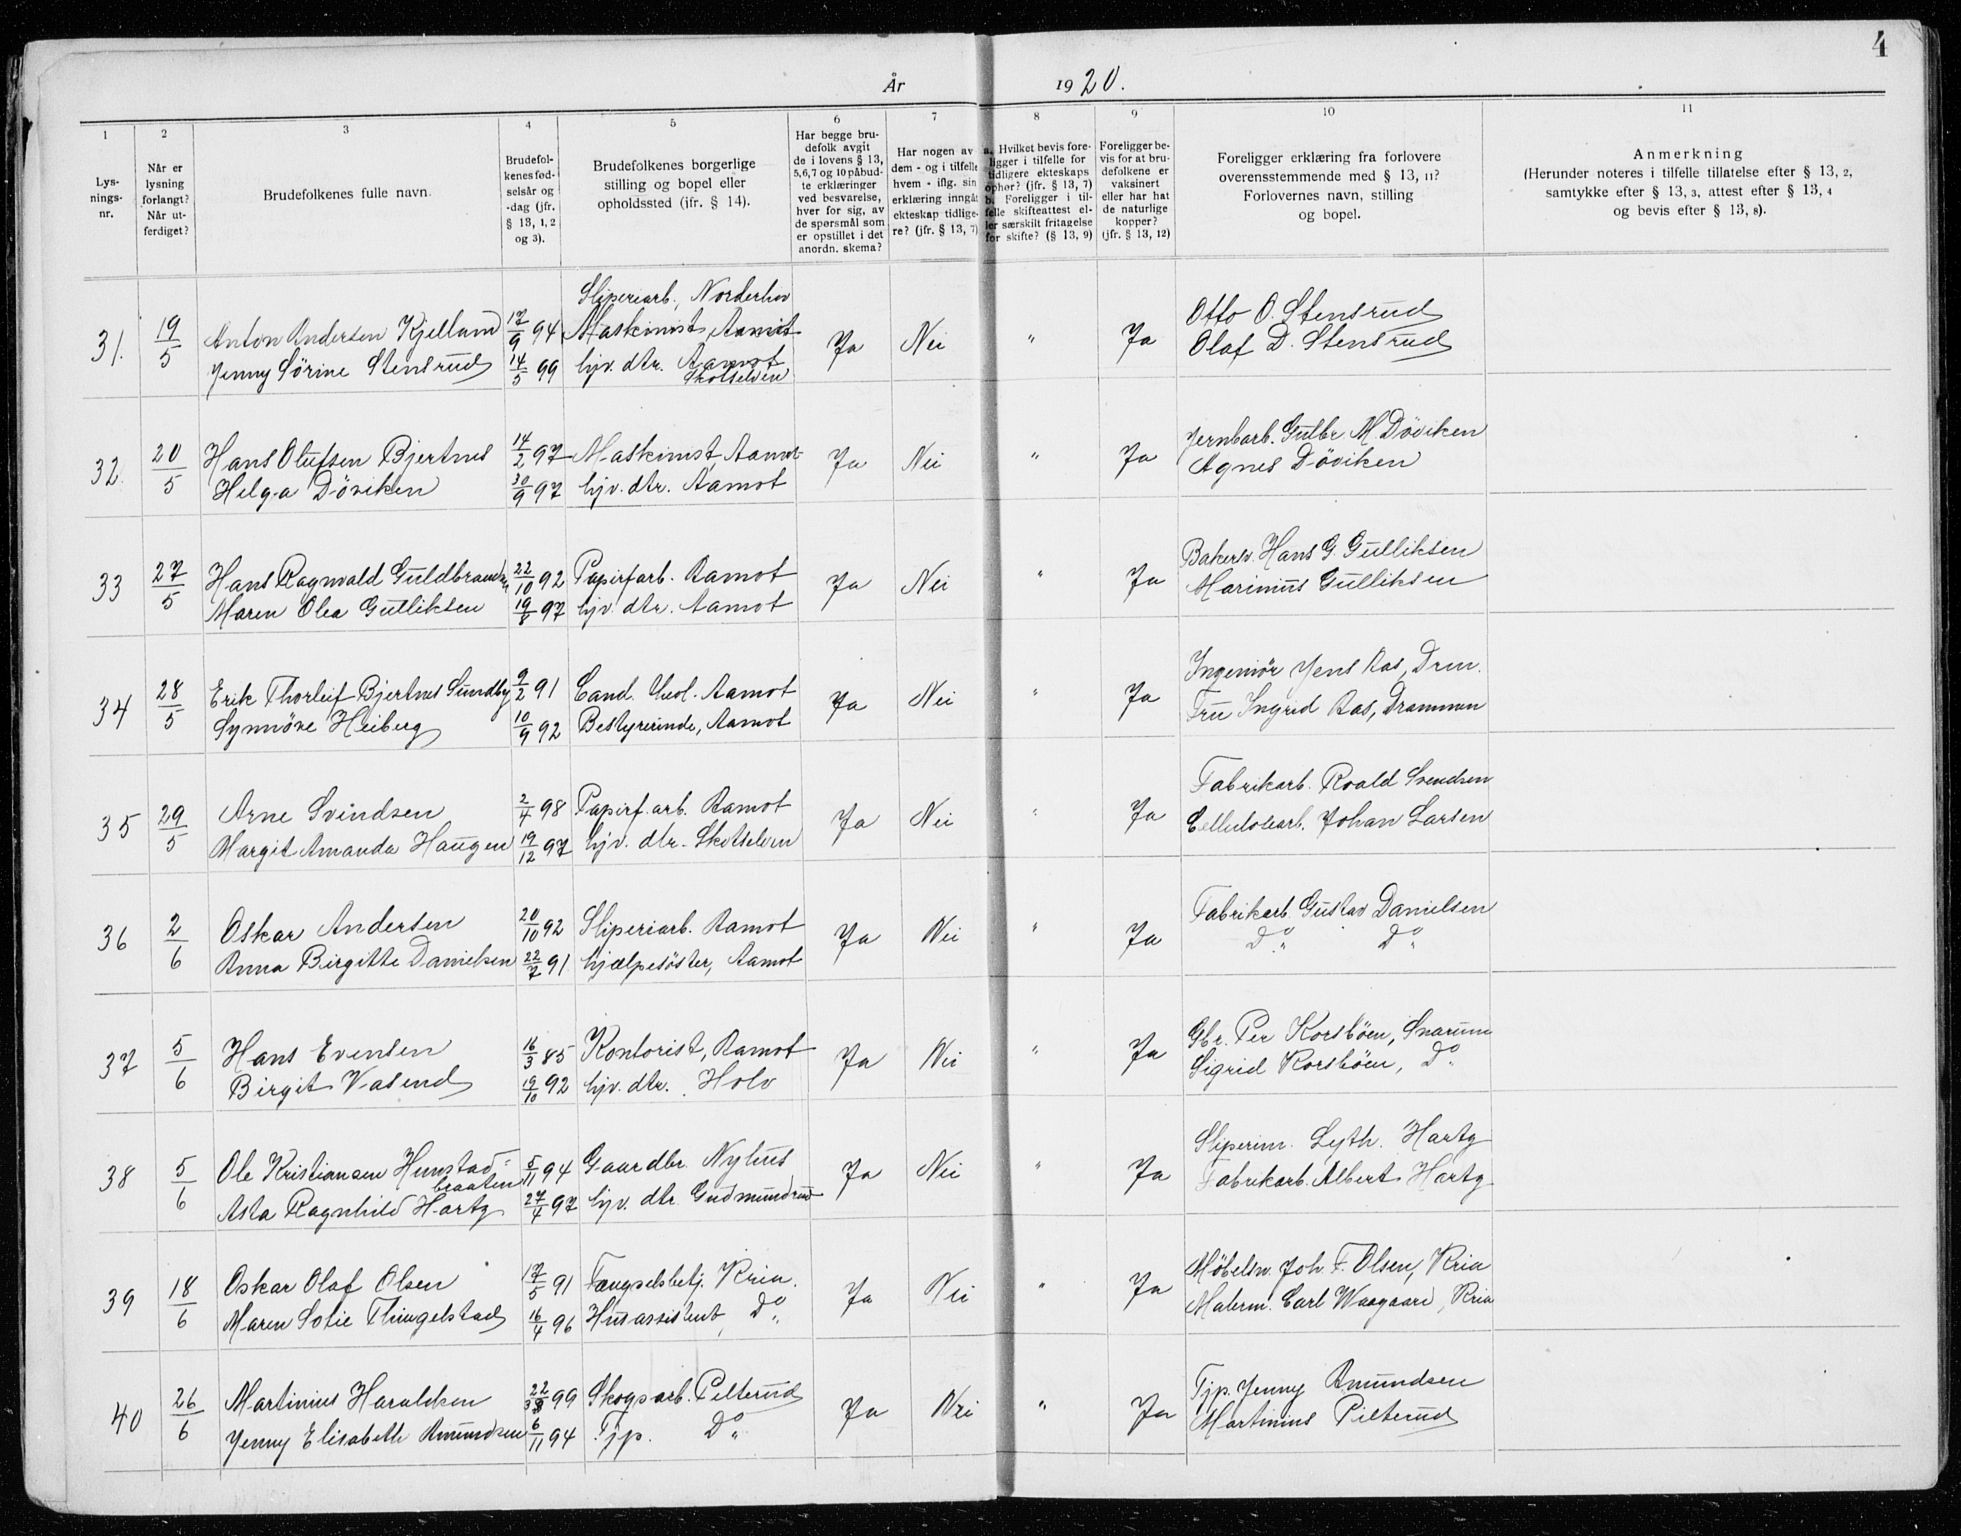 4
År 1920.
1 2 3 4 5 6 7 8 9 10 11
Lysningsnr.
Når er lysning forlangt? Når utferdiget?
Brudefolkenes fulle navn.
Brudefolkenes fødselsår og -dag (jfr. § 13, 1, 2 og 3).
Brudefolkenes borgerlige stilling og bopel eller opholdssted (jfr. § 14).
Har begge brudefolk avgit de i lovens § 13, 5,6,7 og 10 påbudte erklæringer ved besvarelse, hver for sig, av de spørsmål som er opstillet i det anordn. skema?
Har nogen av dem - og i tilfelle hvem - iflg. sin erklæring inngåt ekteskap tidligere? (jfr. § 13, 7)
a. Hvilket bevis foreligger i tilfelle for tidligere ekteskaps ophør? (jfr. § 13, 7) b. Foreligger i tilfelle skifteattest eller særskilt fritagelse for skifte? (§ 13, 9)
Foreligger bevis for at brudefolkene er vaksinert eller har hat de naturlige kopper? (jfr. § 13, 12)
Foreligger erklæring fra forlovere overensstemmende med § 13, 11? Forlovernes navn, stilling og bopel.
Anmerkning (Herunder noteres i tilfelle tillatelse efter § 13, 2, samtykke efter § 13, 3, attest efter § 13, 4 og bevis efter § 13, 8).
Sliperiarb., Norderhov
31. 19/5 Anton Andersen Kjelland 17/9 94 Maskinist, Aamot Ja Nei " Ja Otto O. Stensrud
Jenny Sörine Stensrud 14/5 99 hjv. dtr. Aamot Olaf D. Stensrud
Skotselven
32. 20/5 Hans Olufsen Bjertnes 14/2 97 Maskinist Aamot Ja Nei " Ja Jernbarb. Gulbr. M. Döviken
Helga Döviken 30/9 97 hjv. dtr. Aamot Agnes Döviken
33 27/5 Hans Ragnvald Guldbrandsen 22/10 92 Papirfarb. Aamot Ja Nei " Ja Bakersv. Hans G. Gulliksen
Maren Olea Gulliksen 19/8 97 hjv. dtr. Aamot Marinius Gulliksen
34 28/5 Erik Thorleif Bjertnes Sundby 9/2 91 Cand. theol. Aamot Ja Nei " Ja Ingeniör Jens Aas, Drm.
Synnöve Heiberg 10/9 92 Bestyrerinde, Aamot Fru Ingrid Aas, Drammen
35 29/5 Arne Svindsen 2/4 98 Papirf.arb. Aamot Ja Nei " Ja Fabrikarb. Roald Svendsen
Margit Amanda Haugen 19/12 97 hjv. dtr. Skotselven Cellulosearb. Johan Larsen
36 2/6 Oskar Andersen 20/10 92 Sliperiarb. Aamot Ja Nei " Ja Fabrikarb. Gustav Danielsen
Anna Birgitte Danielsen 22/7 91 hjælpesöster, Aamot Do Do
37 5/6 Hans Evensen 16/3 85 Kontorist, Aamot Ja Nei " Ja Gbr. Per Korsböen, Snarum
Birgit Vasend 19/10 92 hjv. dtr. Holo Sigrid Korsböen, Do
38 5/6 Ole Kristiansen Hunstad- 5/11 94 Gaardbr. Nyhus Ja Nei " Ja Sliperim. Lyth. Hartz
braaten
Asta Ragnhild Hartz 27/4 97 hjv. dtr. Gudmundrud Fabrikarb. Albert Hartz
39 18/6 Oskar Olaf Olsen 17/5 91 Fængselsbetj. Kria. Ja Nei " Ja Möbelsn. Joh. F. Olsen, Kria
Maren Sofie Thingelstad 16/4 96 Husassistent, Do Malerm. Carl Waagaard, Kria
40 26/6 Martinius Haraldsen 22/3 99 Skogsarb. Pilterud Ja Nei " Ja Tjp. Jenny Amundsen
Jenny Elisabeth Amundsen 6/11 94 Tjp. Do Martinius Pilterud